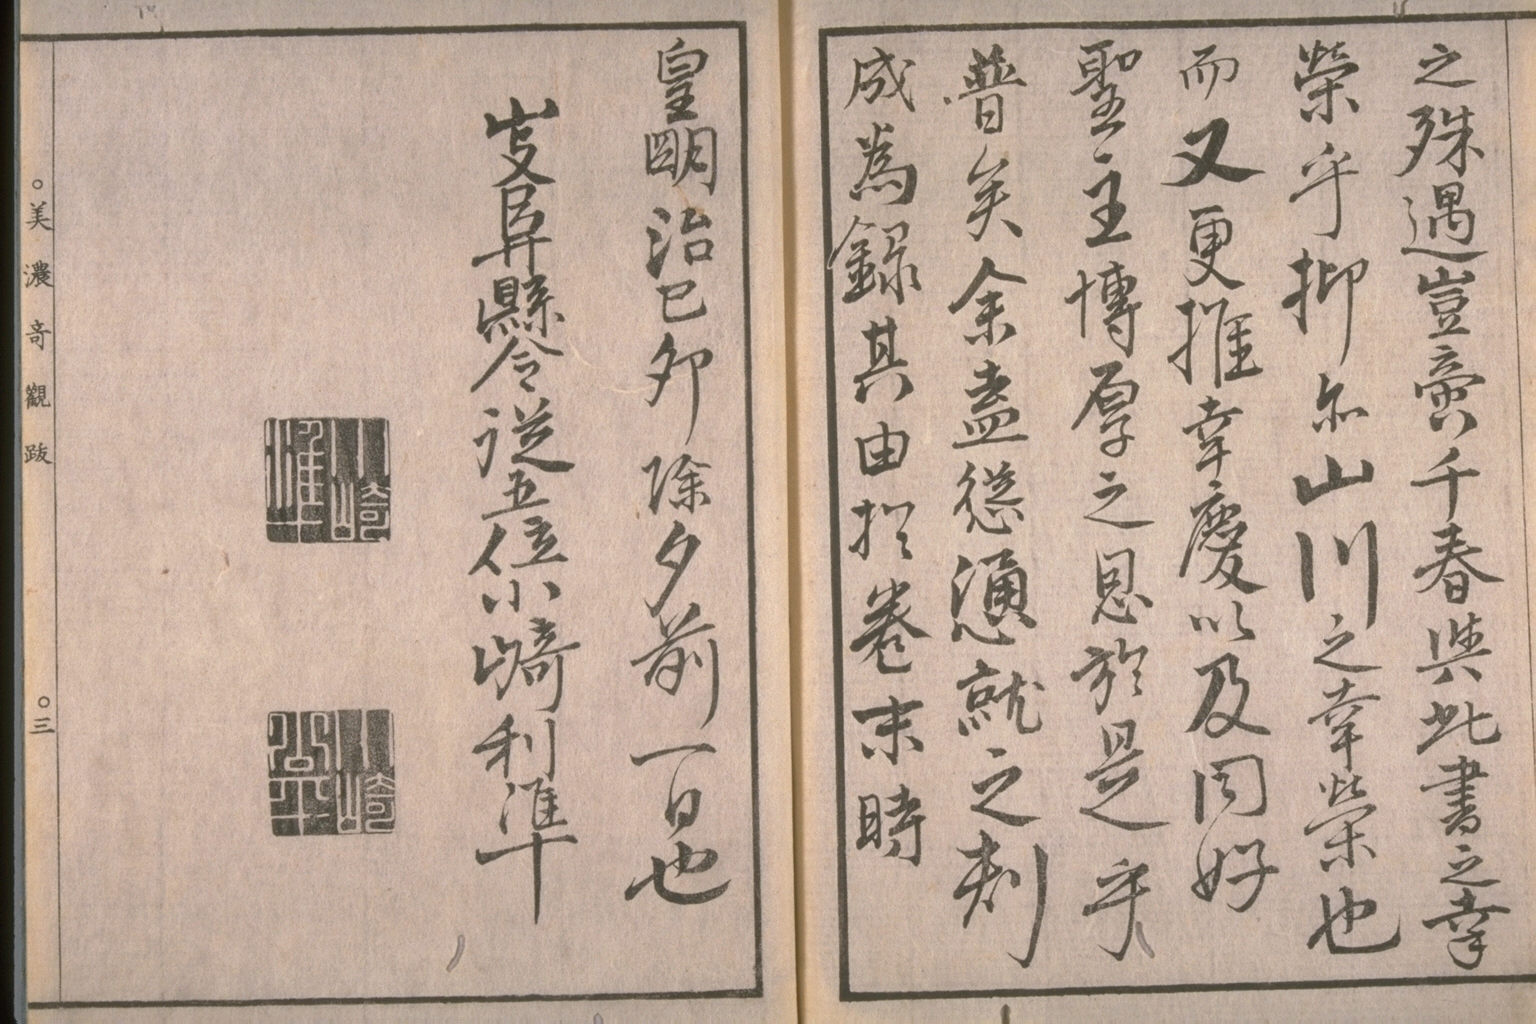 之殊遇豈啻千春與此書之幸
榮乎抑亦山川之幸榮也
而又更推幸慶以及同好
聖主博厚之恩於是乎
普矣余盍慫慂就之刻
成為錄其由於卷末時
皇明治己卯除夕前一日也
岐阜縣令從五位小崎利準
小崎
利準
小崎
公平
○美濃奇觀跋
○三